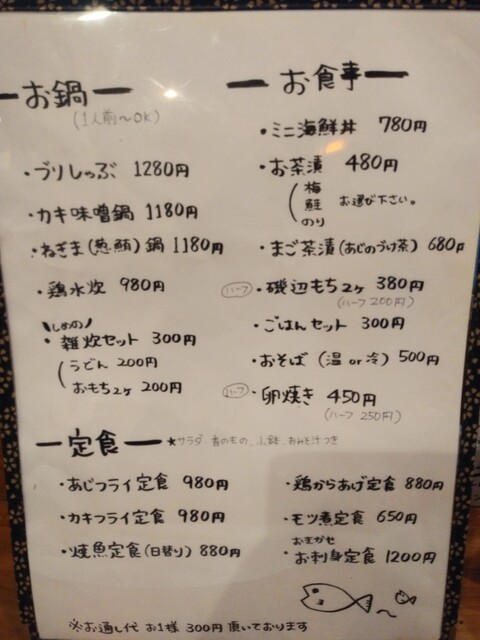 お鍋
(1人前〜OK)
・ブリしゃぶ 1280円
・カキ味噌鍋 1180円
・ねぎま(葱鮪)鍋 1180円
・鶏水炊 980円
\しめの/
・雑炊セット 300円
うどん 200円
おもち2ヶ 200円
お食事
・ミニ海鮮丼 780円
・お茶漬 480円
(梅
鮭 お選び下さい。
のり
・まご茶漬(あじのづけ茶) 680円
ハーフ ・磯辺もち2ヶ 380円
(ハーフ 200円)
・ごはんセット 300円
・おそば (温 or 冷) 500円
ハーフ ・卵焼き 450円
(ハーフ 250円)
定食 ★サラダ、青のもの、小鉢、おみそ汁つき
・あじフライ定食 980円
・カキフライ定食 980円
・焼魚定食(日替り) 880円
・鶏からあげ定食 880円
・モツ煮定食 650円
おまかせ
・お刺身定食 1200円
※お通し代 お1様 300円 頂いております